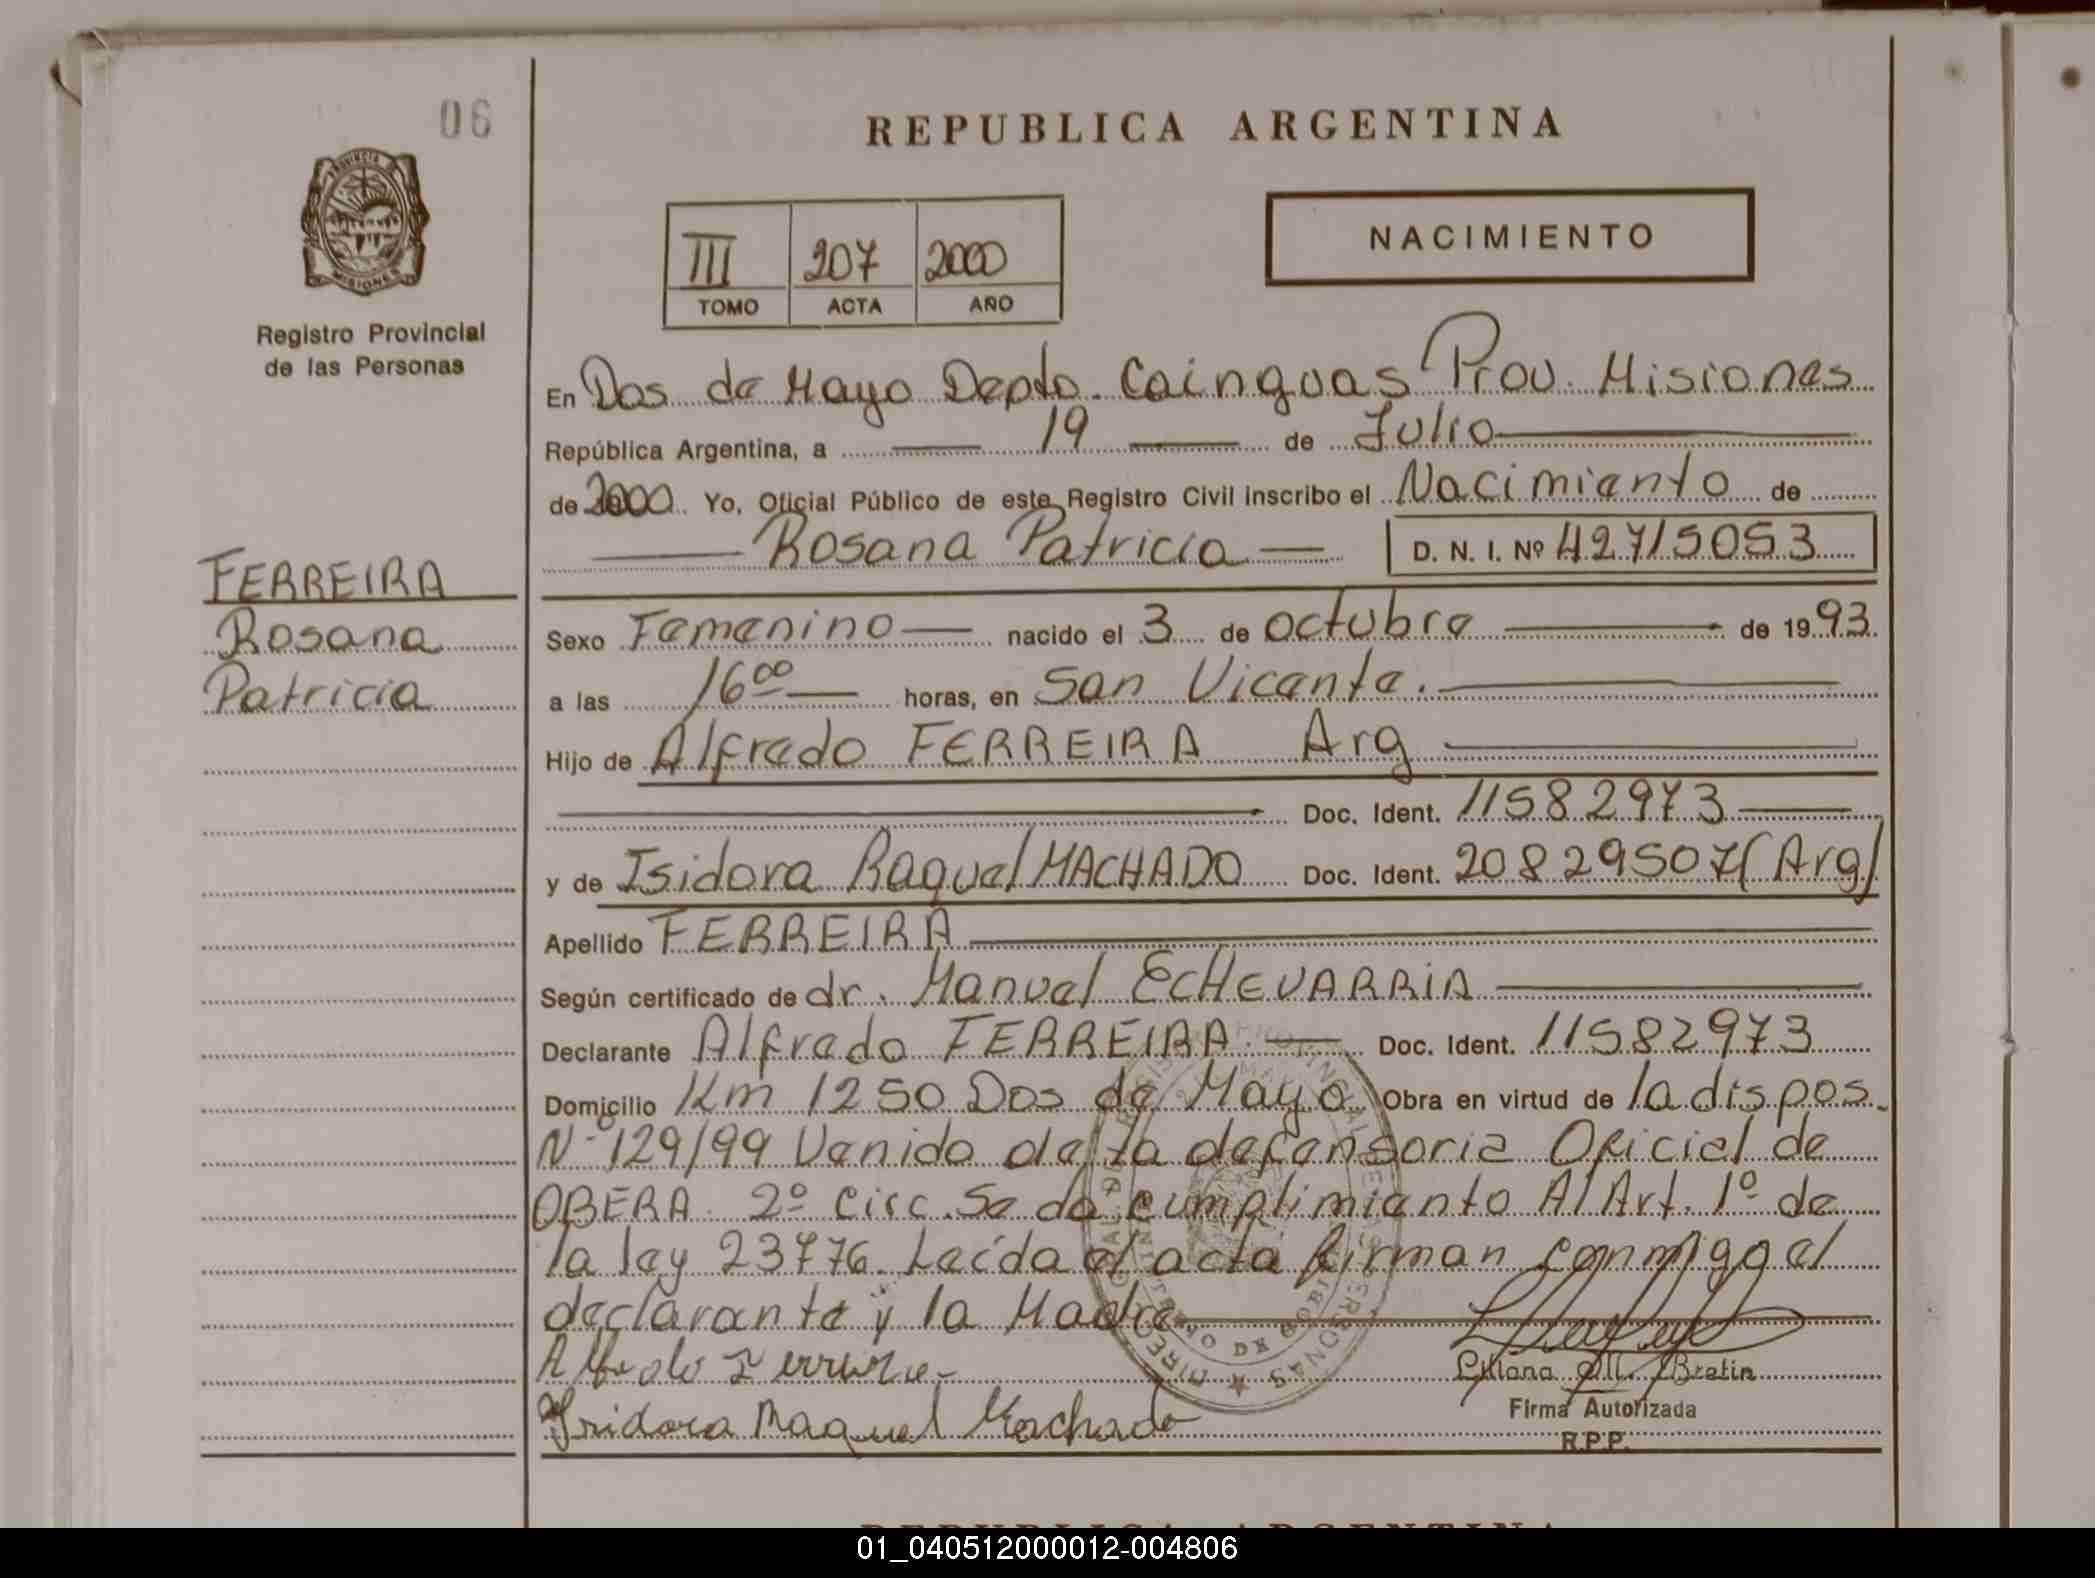 06
REPUBLICA ARGENTINA
PROVINCIA DE
MISIONES
Registro Provincial
de las Personas
NACIMIENTO
III 207 2000
TOMO ACTA AÑO
En Dos de Mayo Depto. Cainguas Prov. Misiones
República Argentina, a — 19 — de Julio
de 2000. Yo, Oficial Público de este Registro Civil inscribo el Nacimiento de
Rosana Patricia — D. N. I. Nº 42715053
FERREIRA
Rosana
Patricia
Sexo Femenino — nacido el 3 de octubre — de 1993.
a las 16 00 — horas, en San Vicente.
Hijo de Alfredo FERREIRA Arg
Doc. Ident. 11582973
y de Isidora Raquel MACHADO Doc. Ident. 20829507 (Arg)
Apellido FERREIRA
Según certificado de dr. Manuel ECHEVARRIA
Declarante Alfredo FERREIRA — Doc. Ident. 11582973
Domicilio Km 1250 Dos de Mayo Obra en virtud de la dispos.
Nº 129/99 Venido de la defensoria Oficial de
OBERA 2º Circ. Se da cumplimiento Al Art. 1º de
la ley 23776. Leída el acta firman conmigo el
declarante y la Madre
Isidora Raquel Machado
Liliana M. Bretin
Firma Autorizada
R.P.P.
REPUBLICA ARGENTINA
01_040512000012-004806